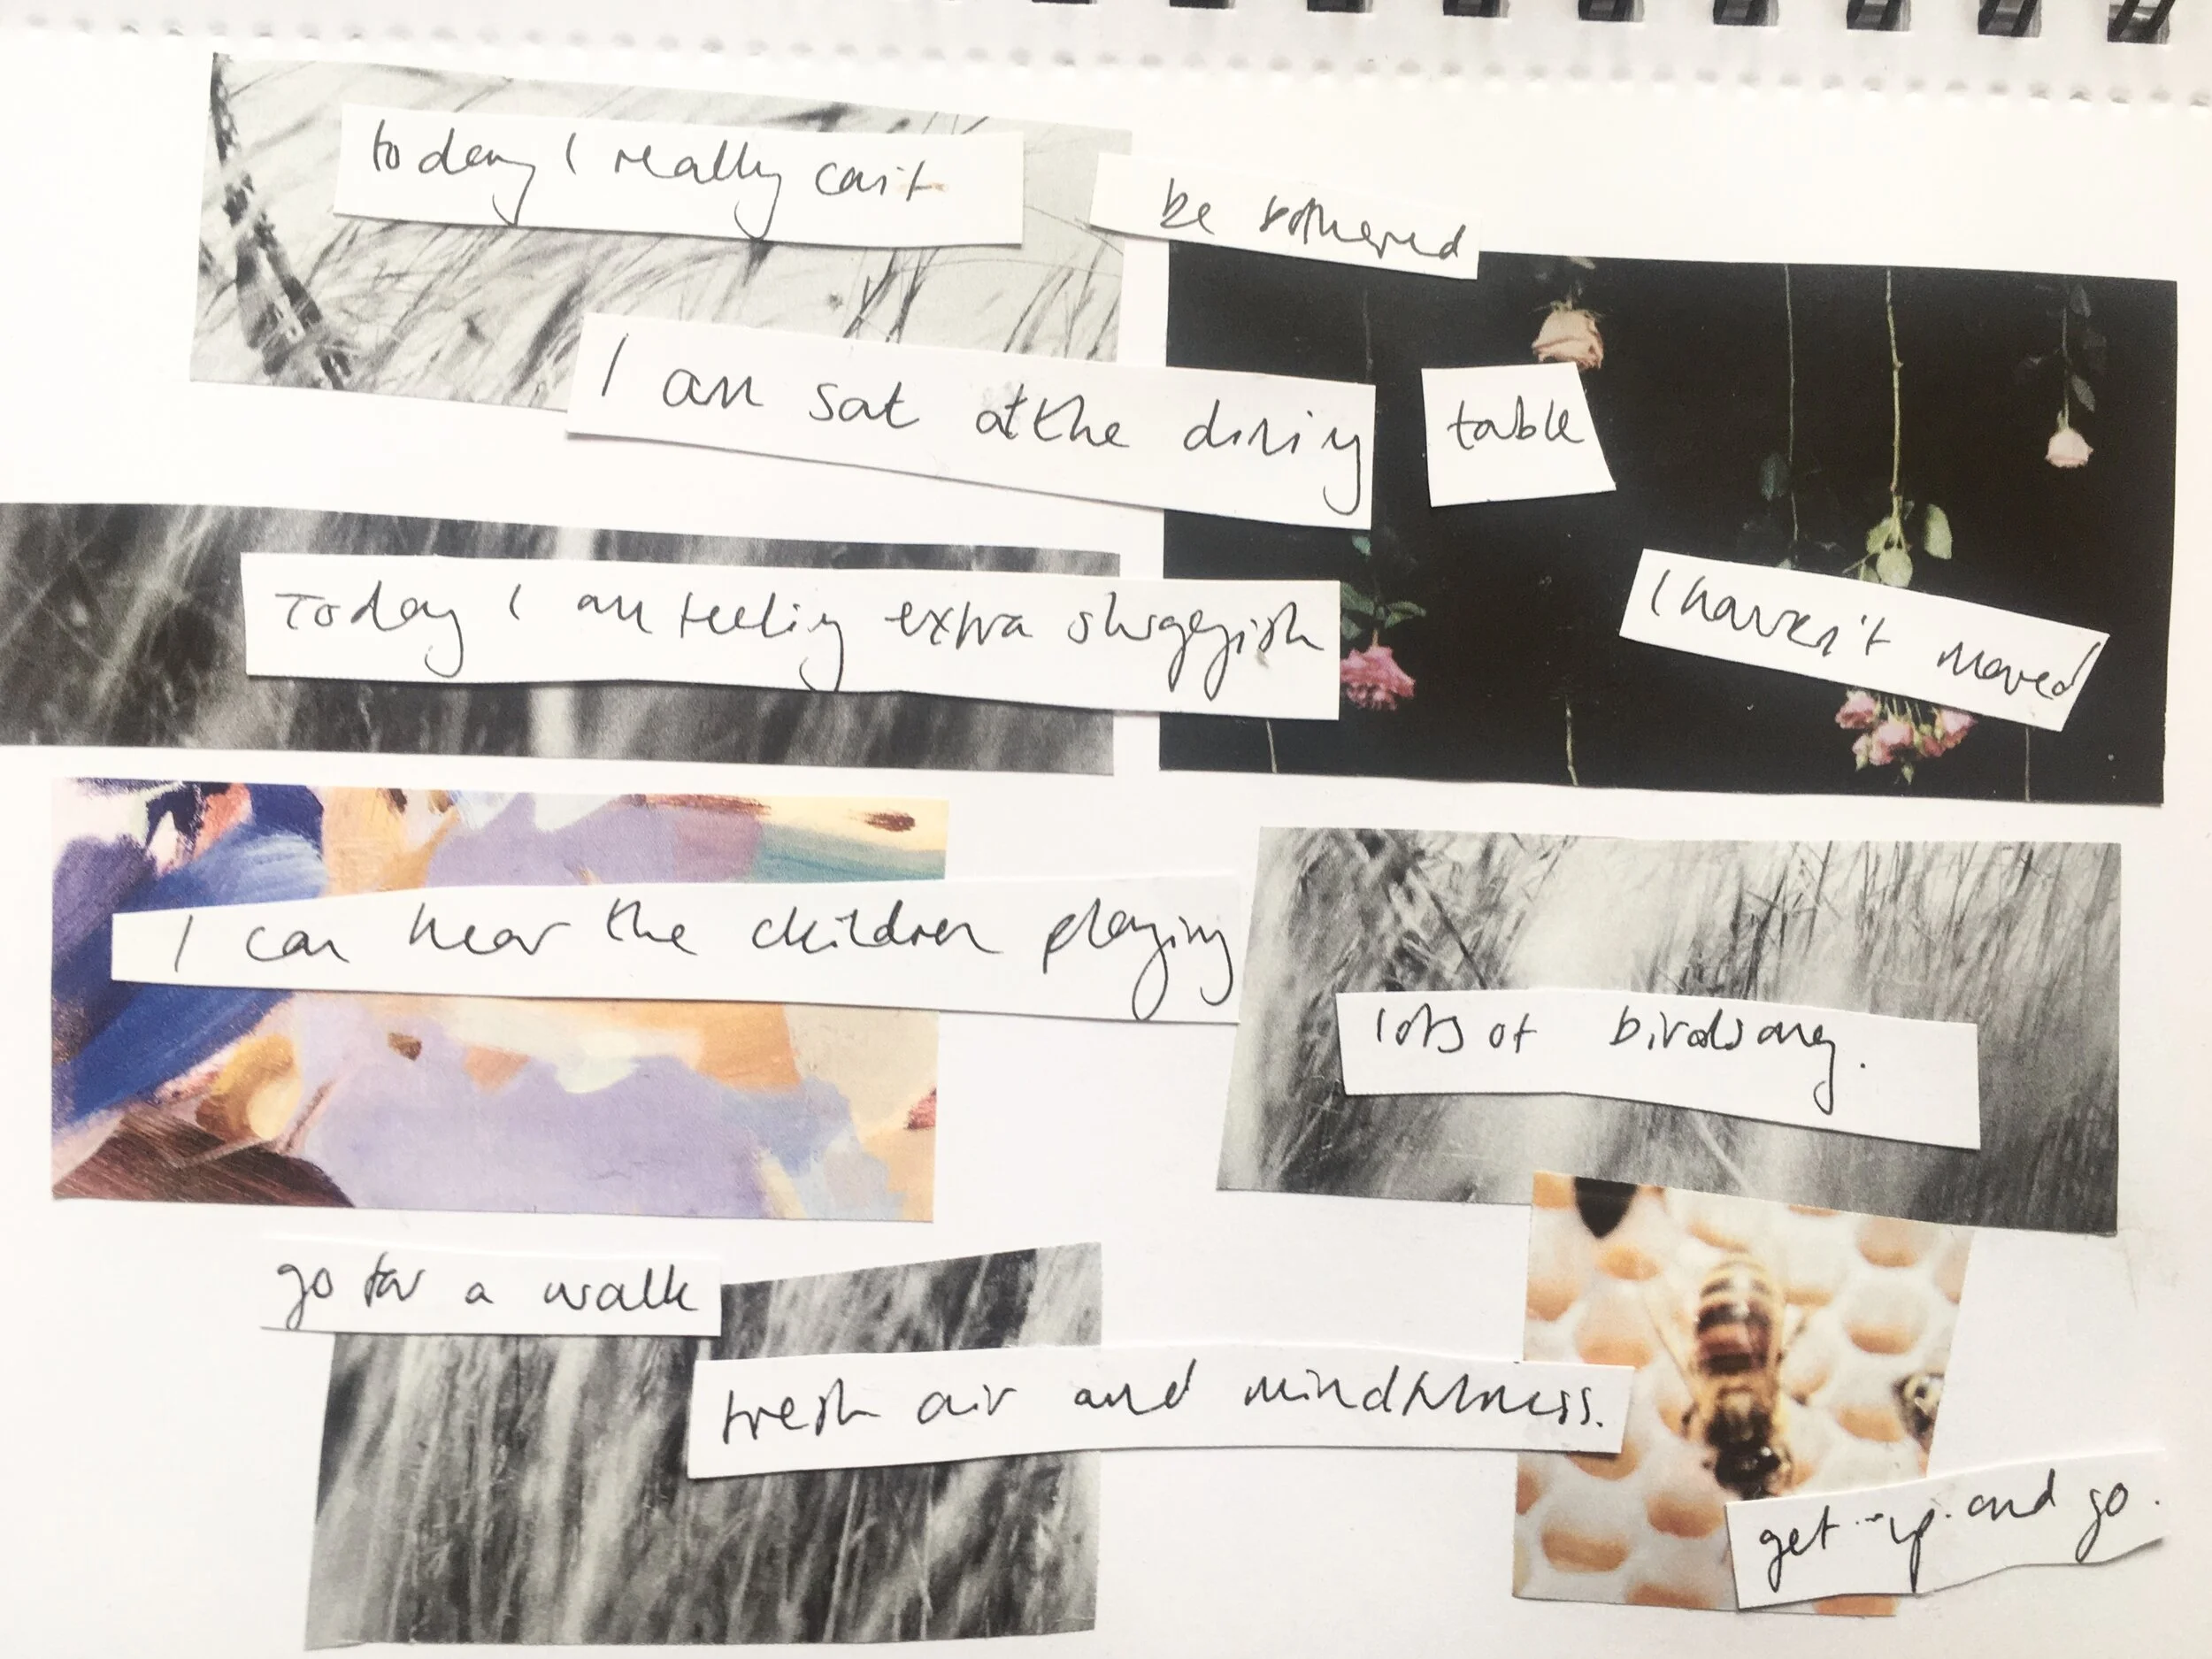 today I really can't
be bothered
I am sat at the dining
table
Today I am feeling extra sluggish
I haven't moved
I can hear the children playing
lots of birdsong.
go for a walk
fresh air and mindfulness.
get up and go.